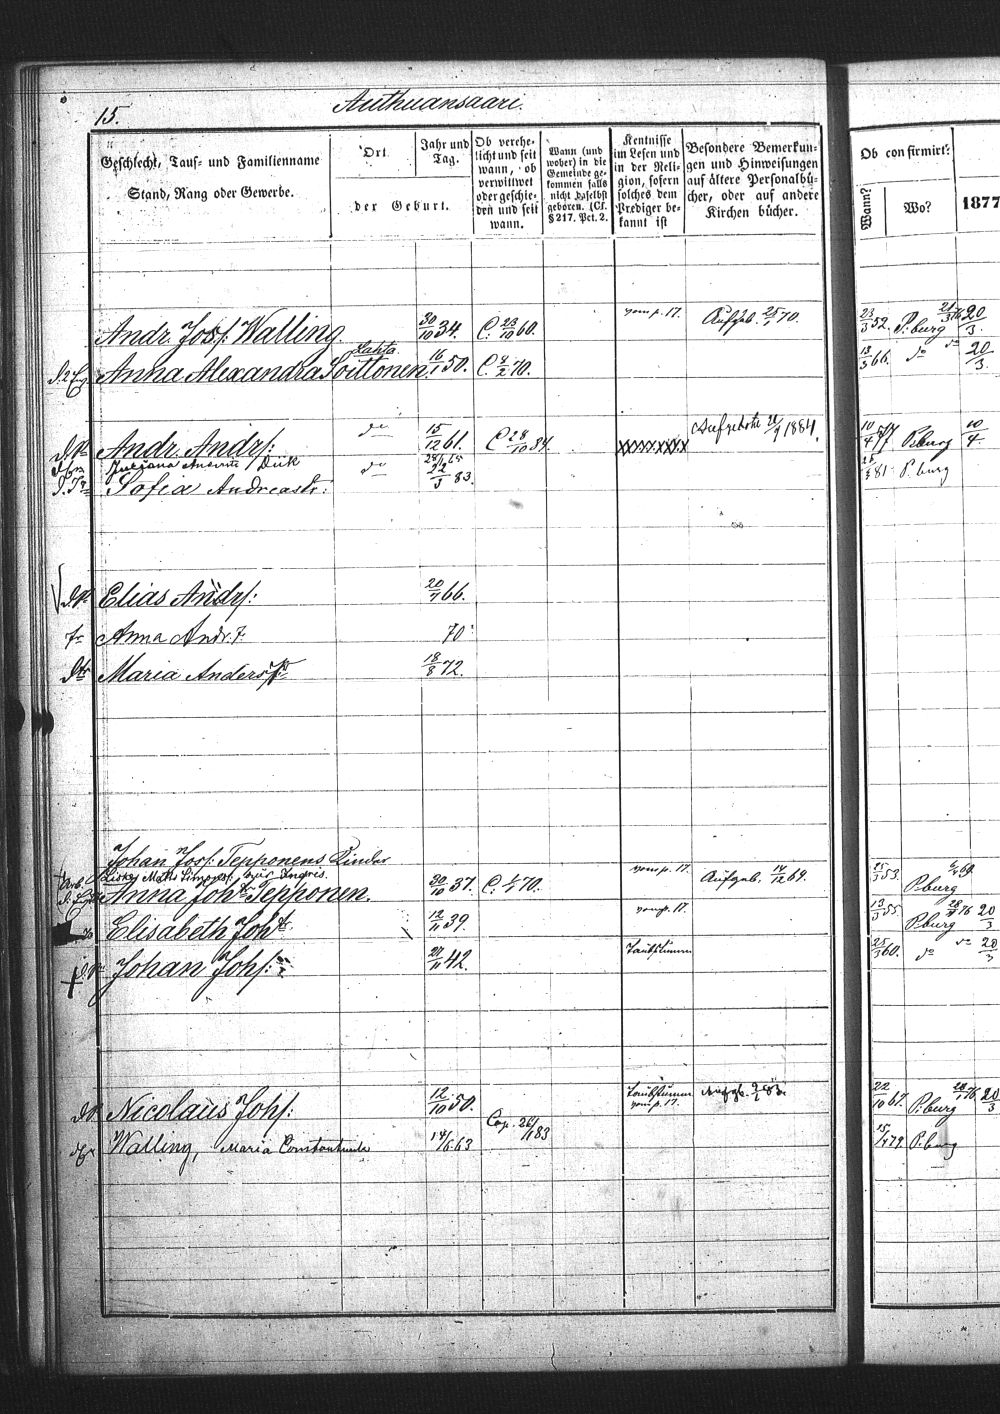 15.
Authuansaari.
Geschlecht, Tauf- und Familienname
Stand, Rang oder Gewerbe.
Ort
der Geburt.
Jahr und Tag.
Ob verehe-
licht und seit
wann, ob
verwittwet
oder geschie-
den und seit
wann.
Wann (und
woher) in die
Gemeinde ge-
kommen falls
nicht daselbst
geboren. (Cf.
§ 217. Pct. 2.
Kentnisse
im Lesen und
in der Reli-
gion, sofern
solches dem
Prediger be-
kannt ist
Besondere Bemerkun-
gen und Hinweisungen
auf ältere Personalbü-
cher, oder auf andere
Kirchen bücher.
Ob confirmirt?
Wann?
Wo?
1877
Andr. Josf: Walling. 30/10 34. C. 23/10 60. vom p. 17. Aufgeb. 25/1 70. 23/3 52. P.burg 20/3.
Anna Alexandra Poittonen. Lahta 16/1 50. C 4/2 70. 13/3 66. do 20/3.
Andr. Andrs: do 15/12 61. C 28/10 84. Aufgebote 1884. 10/4 77 P.burg 10/4.
Juliana Dick 65
Sofia Andreastr: do 22/3 83. 81. P.burg
Elias Andrs: 20/7 66.
Anna Andr. T. 70
Maria Anderstr 18/8 72.
Johan Josf: Tepponens Kinder
Arb. Matts Simonss:
Anna Johtr Tepponen. 30/10 37. C. 70. vom p. 17. Aufgeb. 14/12 69. 15/3 53. P.burg 69.
Elisabeth Johtr 12/11 39. vom p. 17. 13/3 55. P.burg 76 20/3
Johan Johs: 24/11 42. Taubstumm 25/3 60. do do 20/3
Nicolaus Johs: 12/10 50. Taubstumm vom p. 17. Aufgb. 83. 22/10 67. P.burg 76 20/3
Walling, Maria 14/6 63 Cop. 26/1 83 15/4 79 P.burg